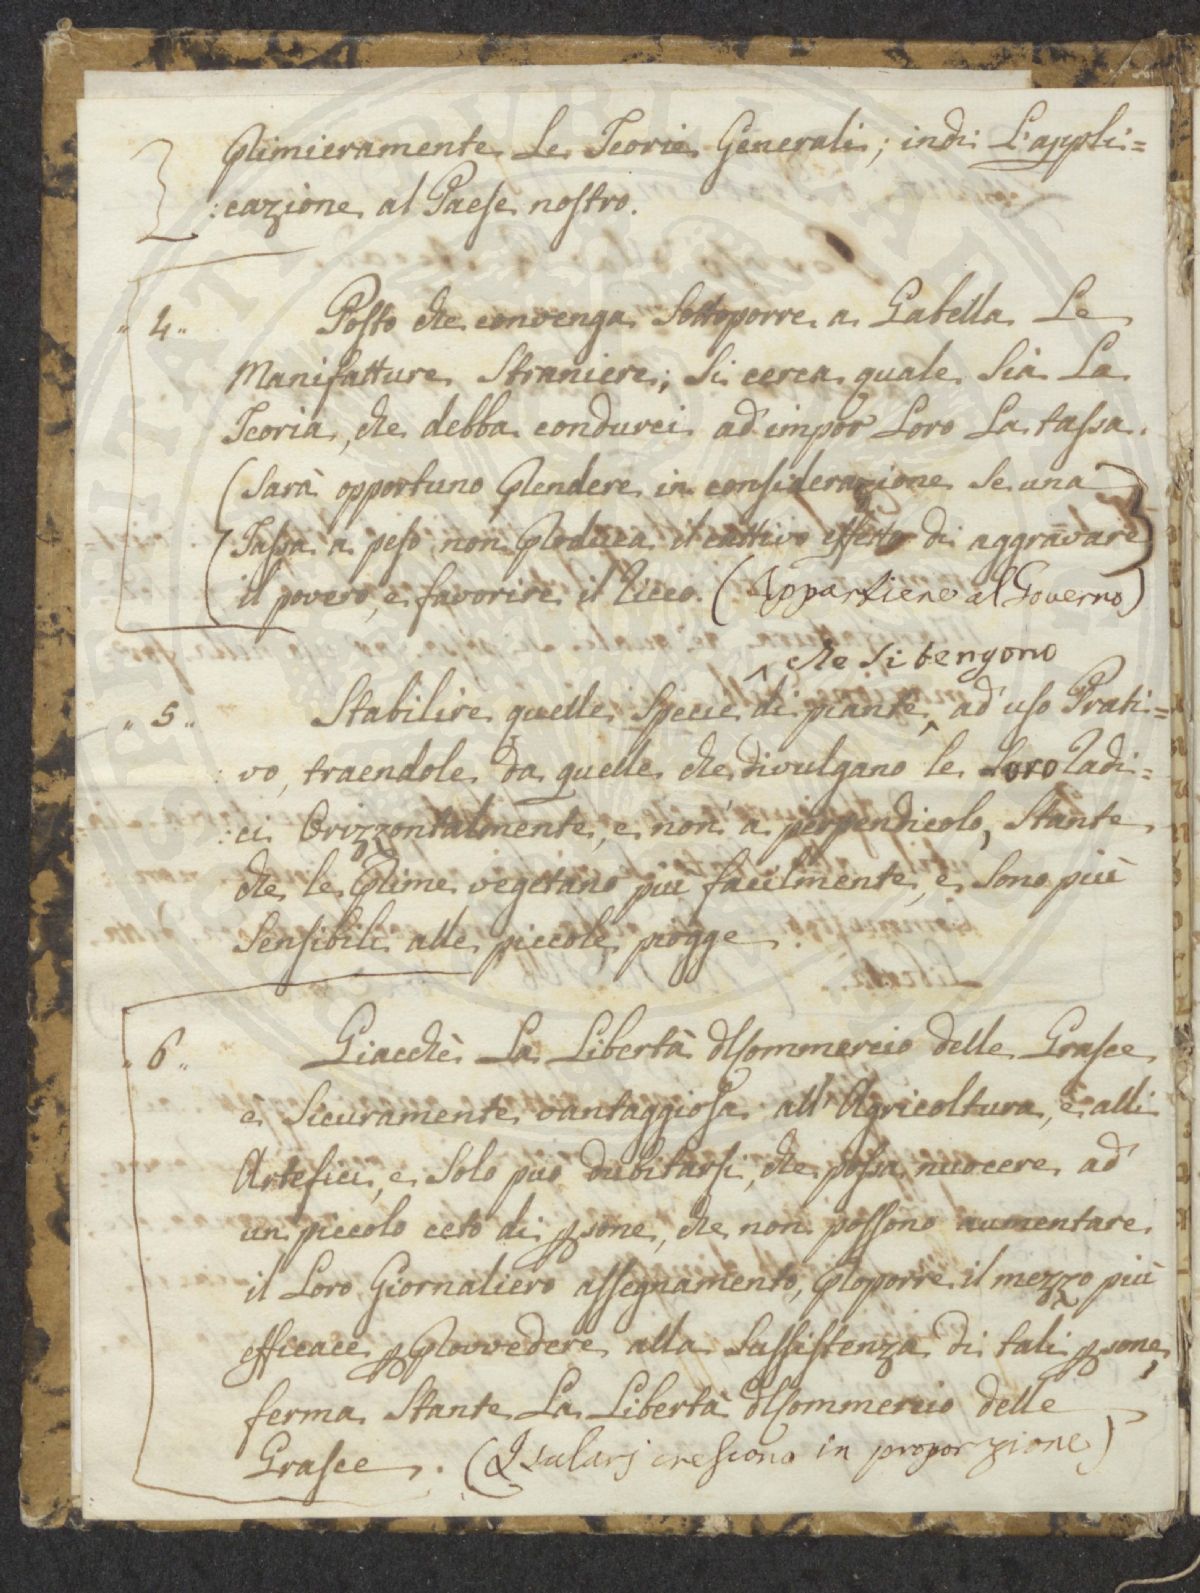 Primieramente le Teorie Generali; indi L'appli=
:cazione al Paese nostro.
"4" Posto che convenga Sottoporre a Gabella Le
Manifatture Straniere; Si cerca quale Sia La
Teoria, che debba condurci ad impor Loro La tassa.
(Sarà opportuno Prendere in considerazione Se una
Tassa a peso non Produca il cattivo effetto di aggravare
il povero, e favorire il Ricco. (Appartiene al Governo)
che si tengono
"5" Stabilire quelle Specie di piante, ad uso Prati=
:vo, traendole da quelle che divulgano le Loro Radi=
:ci Orizzontalmente, e non a perpendicolo, Stante
che le Prime vegetano più facilmente, e Sono più
Sensibili alle piccole piogge.
"6" Giacchè La Libertà del Commercio delle Grasce
e Sicuramente vantaggiosa all'Agricoltura, e alli
Artefici, e Solo può dubitarsi, che possa nuocere ad
un piccolo ceto di psone, che non possono aumentare
il Loro Giornaliero assegnamento, Proporre il mezzo più
efficace p Provvedere alla Sussistenza di tali psone,
ferma Stante La Libertà del Commercio delle
Grasce. (I salarj crescono in proporzione)